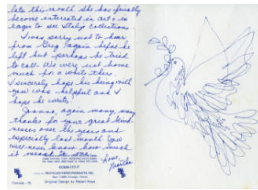 late this month. She has finally
become interested in art & is
eager to see Italy's collections.
I was sorry not to hear
from Greg again - hope he
left but perhaps he tried
to call. We were not home
much for a while there
I sincerely hope his being will
you was helpful and I
hope he writes.
again, again many, many
thanks for your great kind-
nesses over the years and
especially last month. You
will never know how much
it meant to me.
Love,
Original Design by Robert Rose